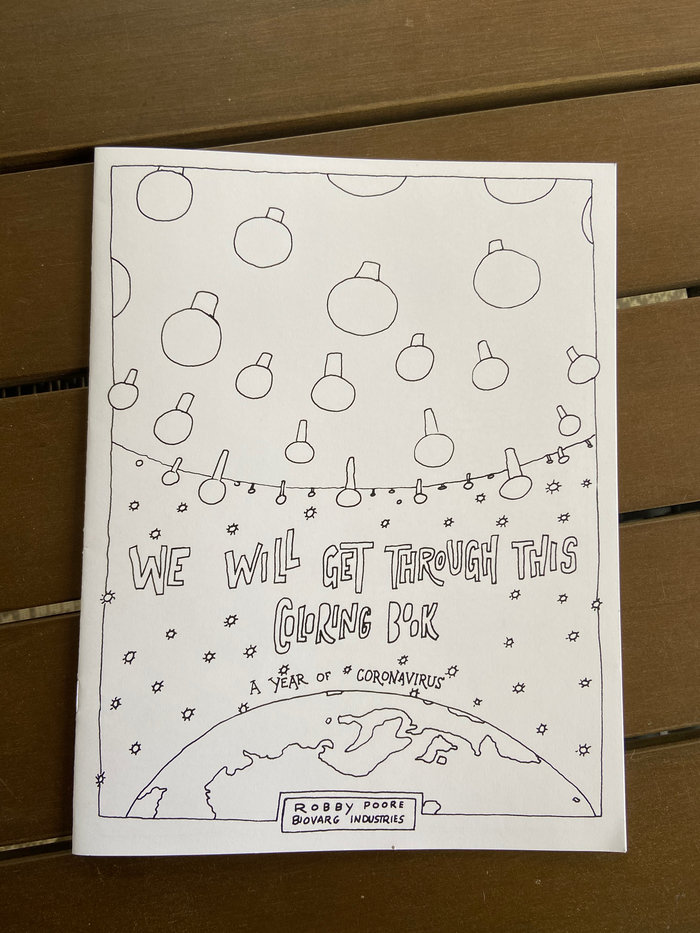 WE WILL GET THROUGH THIS
COLORING BOOK
A YEAR OF CORONAVIRUS
ROBBY POORE
BIOVARG INDUSTRIES